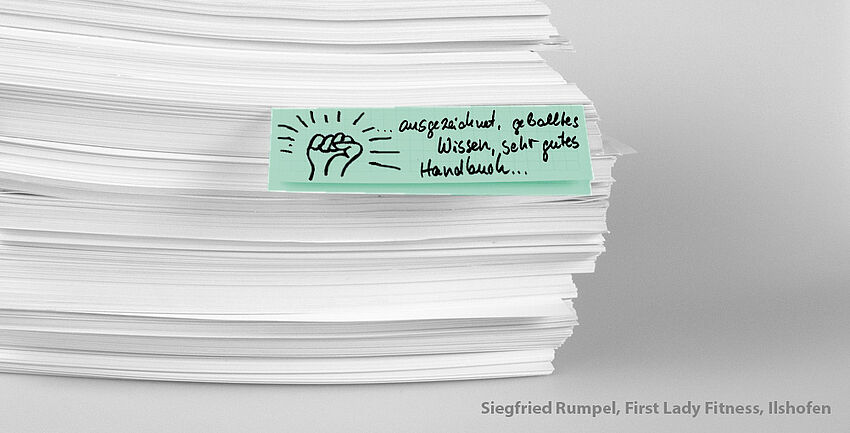 ... ausgezeichnet, geballtes
Wissen, sehr gutes
Handbuch...
Siegfried Rumpel, First Lady Fitness, Ilshofen